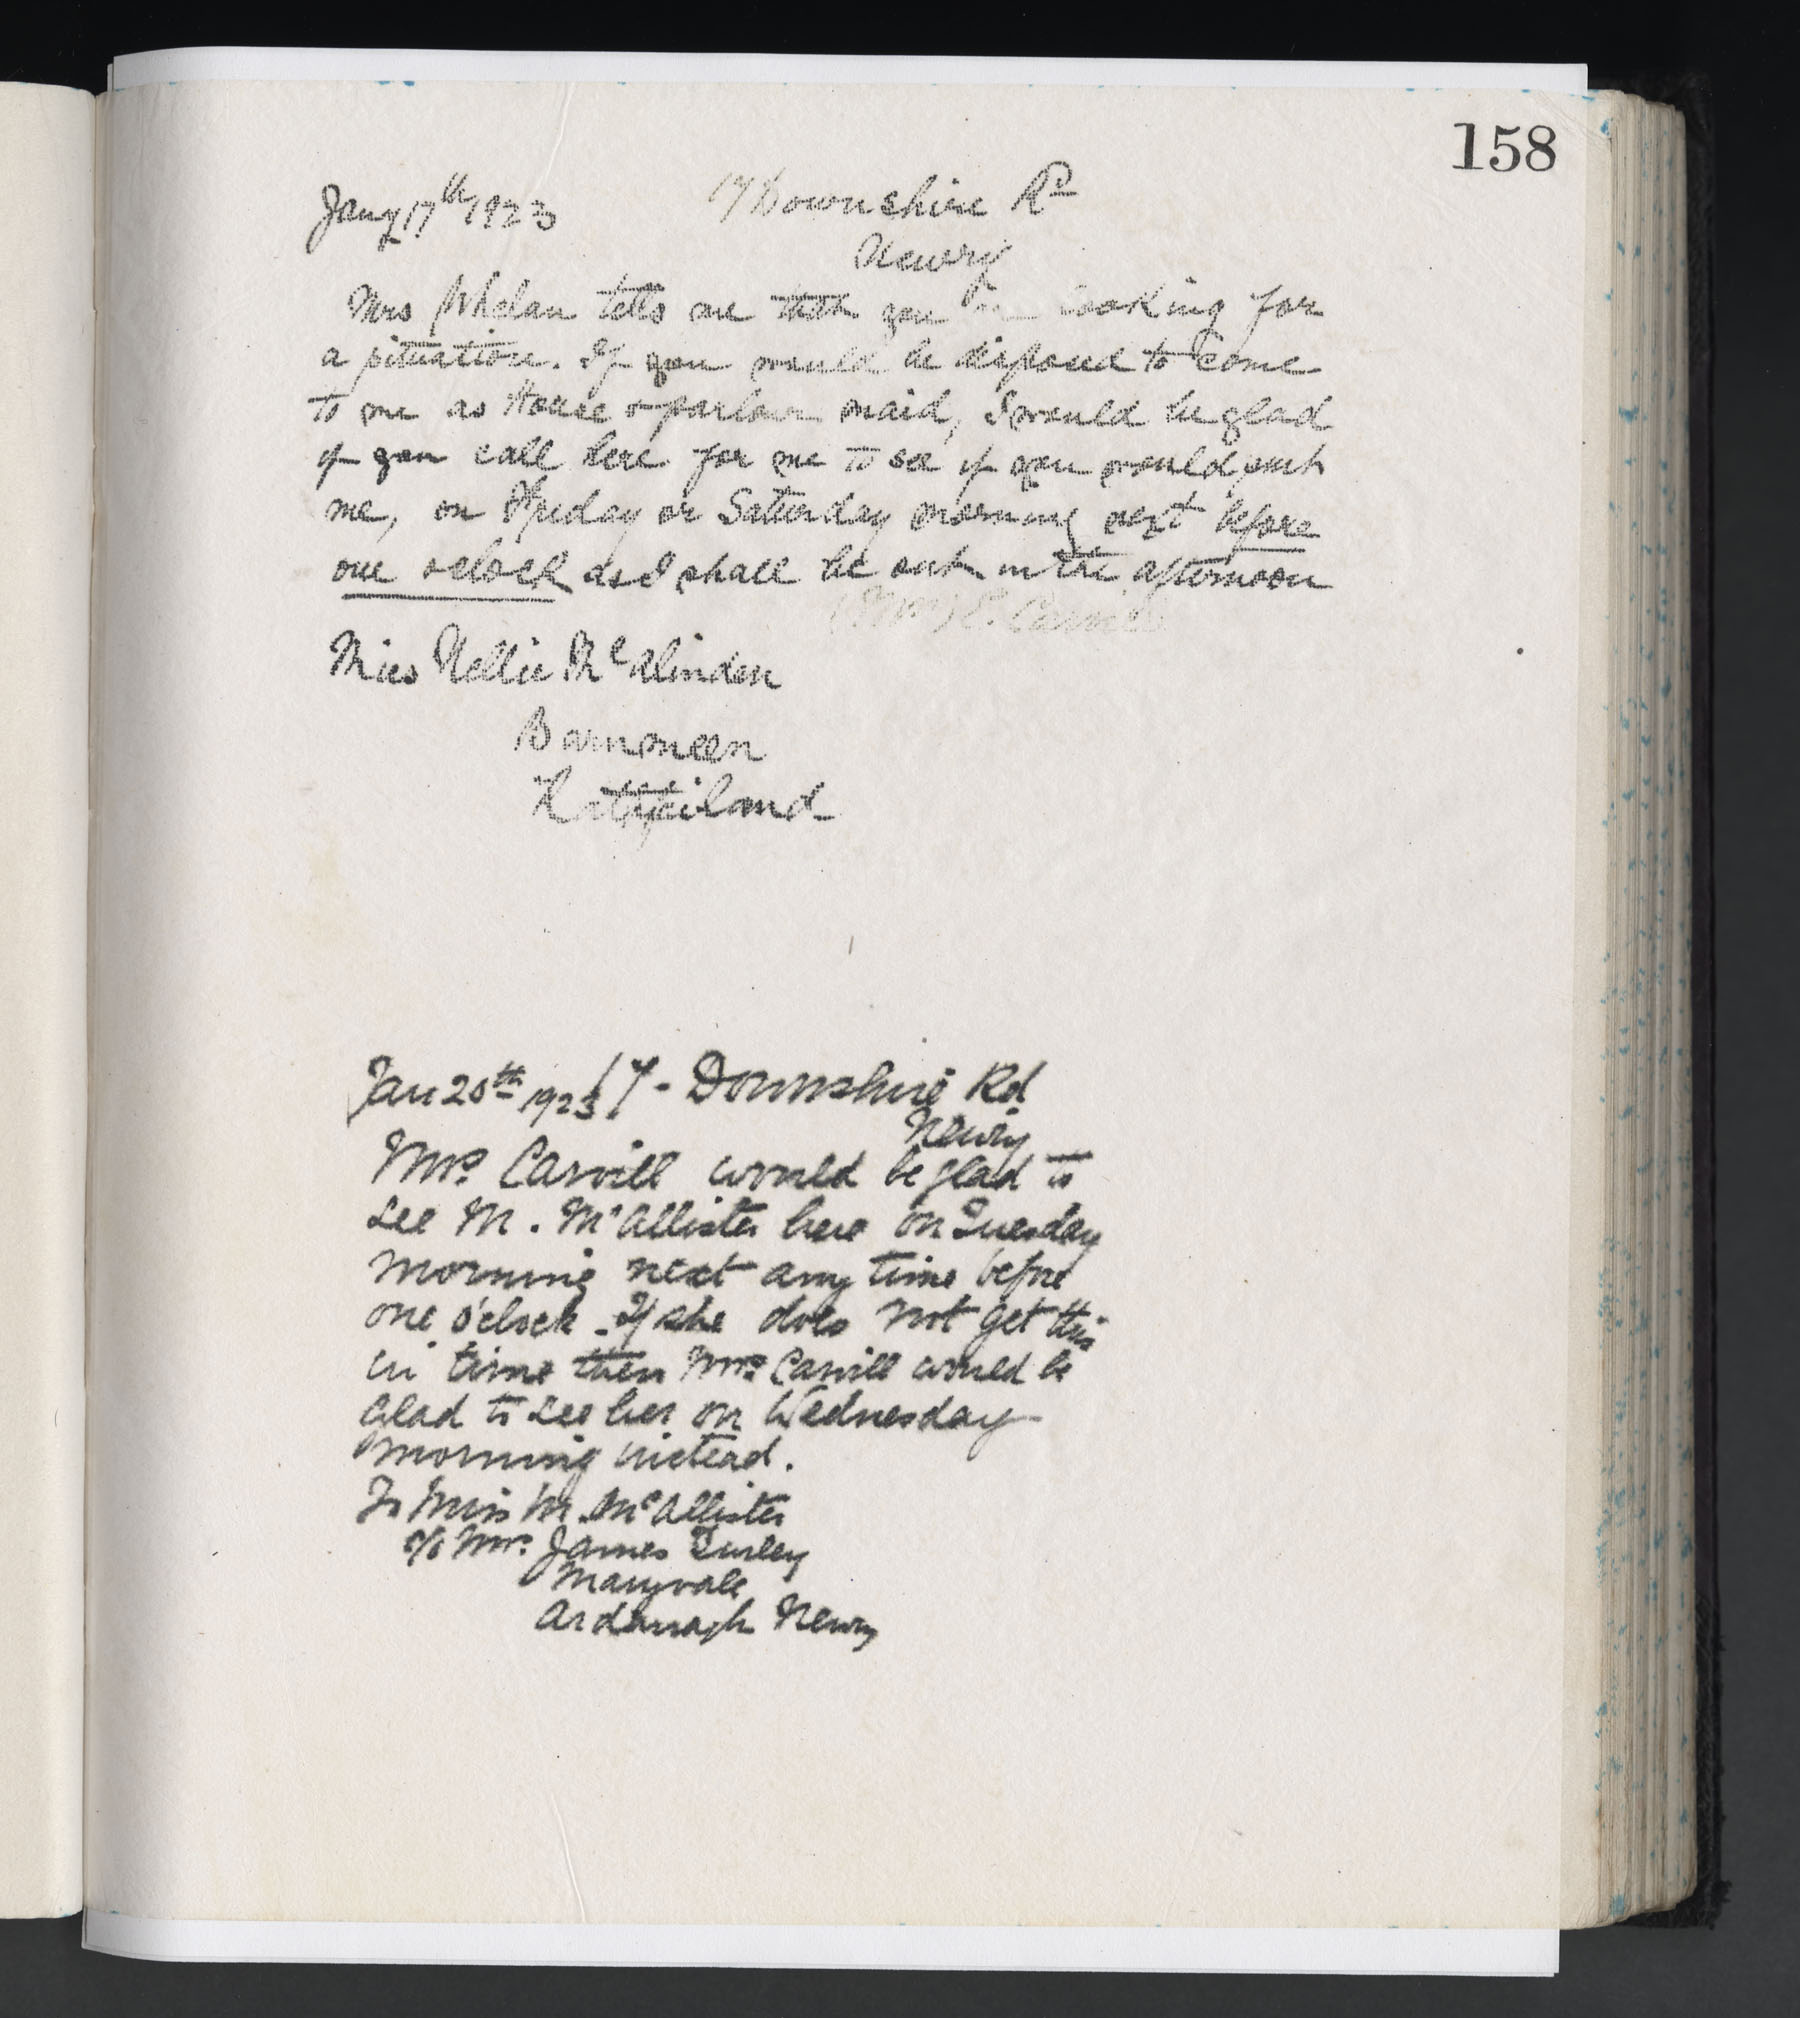 158
Jany 17th 1923 17 Downshire Rd
Newry
Mrs Whelan tells me that you looking for
a situation. If you would be disposed to come
to me as House & parlour maid, I would be glad
if you call here for me to see if you would suit
me, on Friday or Saturday morning next before
one oclock as I shall be out in the afternoon
(Mrs) E. Carvill
Miss Nellie McAlinden
Barnmeen
Rathfriland
Jan 20th 1923 17 - Downshire Rd
Newry
Mrs. Carvill would be glad to
see M. McAllister here on Tuesday
morning next any time before
one o'clock. If she does not get this
in time then Mrs. Carvill would be
glad to see her on Wednesday
morning instead.
To Miss M. McAllister
c/o Mrs. James Turley
Maryvale
Ardarragh Newry